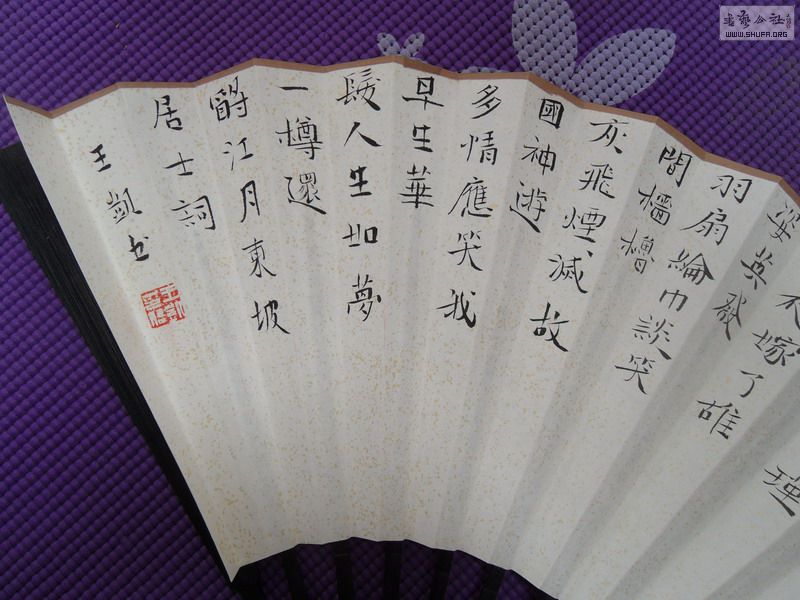 瑾
初嫁了雄
姿英發
羽扇綸巾談笑
間檣櫓
灰飛煙滅故
國神遊
多情應笑我
早生華
髮人生如夢
一樽還
酹江月東坡
居士詞
王凱书
書藝公社
WWW.SHUFA.ORG